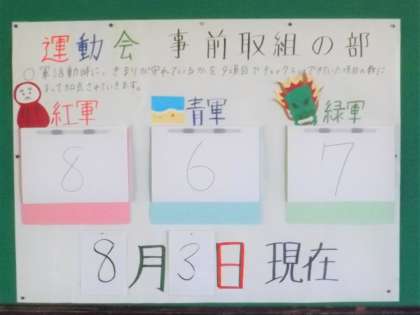 運動会 事前取組の部
○ 軍活動時に、きまりが守れているかを9項目でチェックしできていた項目の数に
よって加点されていきます。
紅軍 青軍 緑軍
8 6 7
8月3日 現在